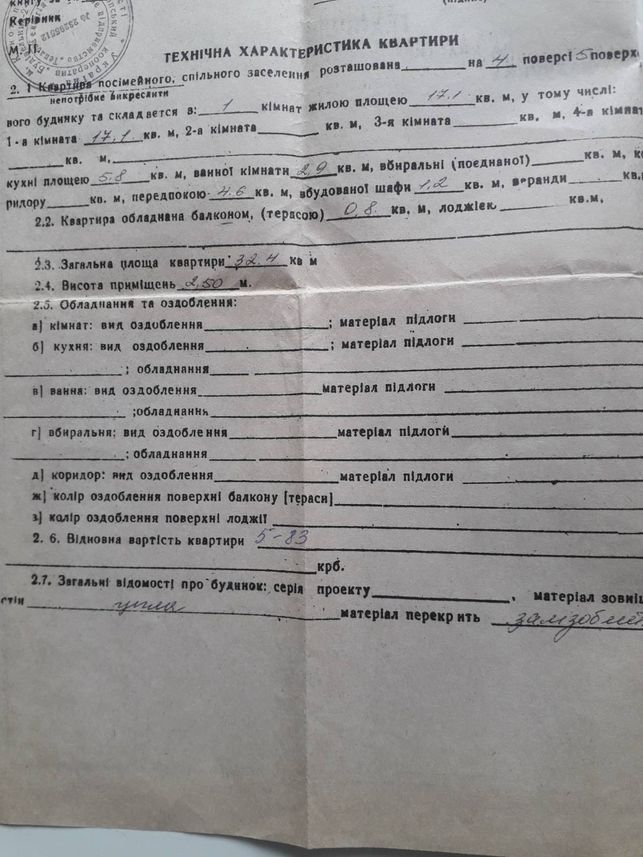 книгу за
Керівник
М. П.
№ 23295512
ТЕХНІЧНА ХАРАКТЕРИСТИКА КВАРТИРИ
2. 1 Квартира посімейного, спільного заселення розташована на 4 поверсі 5 поверх
непотрібне викреслити
вого будинку та складається в: 1 кімнат жилою площею 17,1 кв. м, у тому числі:
1-а кімната 17,1 кв. м, 2-а кімната кв. м, 3-я кімната кв. м, 4-а кімнат
кв. м,
кухні площею 5.8 кв. м, ванної кімнати 2,9 кв. м, вбиральні (поєднаної) кв. м, ко
ридору кв. м, передпокою 4.6 кв. м, вбудованої шафи 1,2 кв. м, веранди кв.
2.2. Квартира обладнана балконом, (терасою) 0,8 кв, м, лоджієк кв.м,
2.3. Загальна площа квартири 32.4 кв м
2.4. Висота приміщень 2,50 м.
2.5. Обладнання та оздоблення:
а) кімнат: вид оздоблення ; матеріал підлоги
б) кухня: вид оздоблення ; матеріал підлоги
; обладнання
в) ванна: вид оздоблення матеріал підлоги
;обладнання
г) вбиральня: вид оздоблення матеріал підлоги
; обладнання
д) коридор: вид оздоблення матеріал підлоги
ж) колір оздоблення поверхні балкону [тераси]
з) колір оздоблення поверхні лоджії
2. 6. Відновна вартість квартири 5-83
крб.
2.7. Загальні відомості про будинок: серія проекту , матеріал зовніш
стін цегла матеріал перекрить залізобет